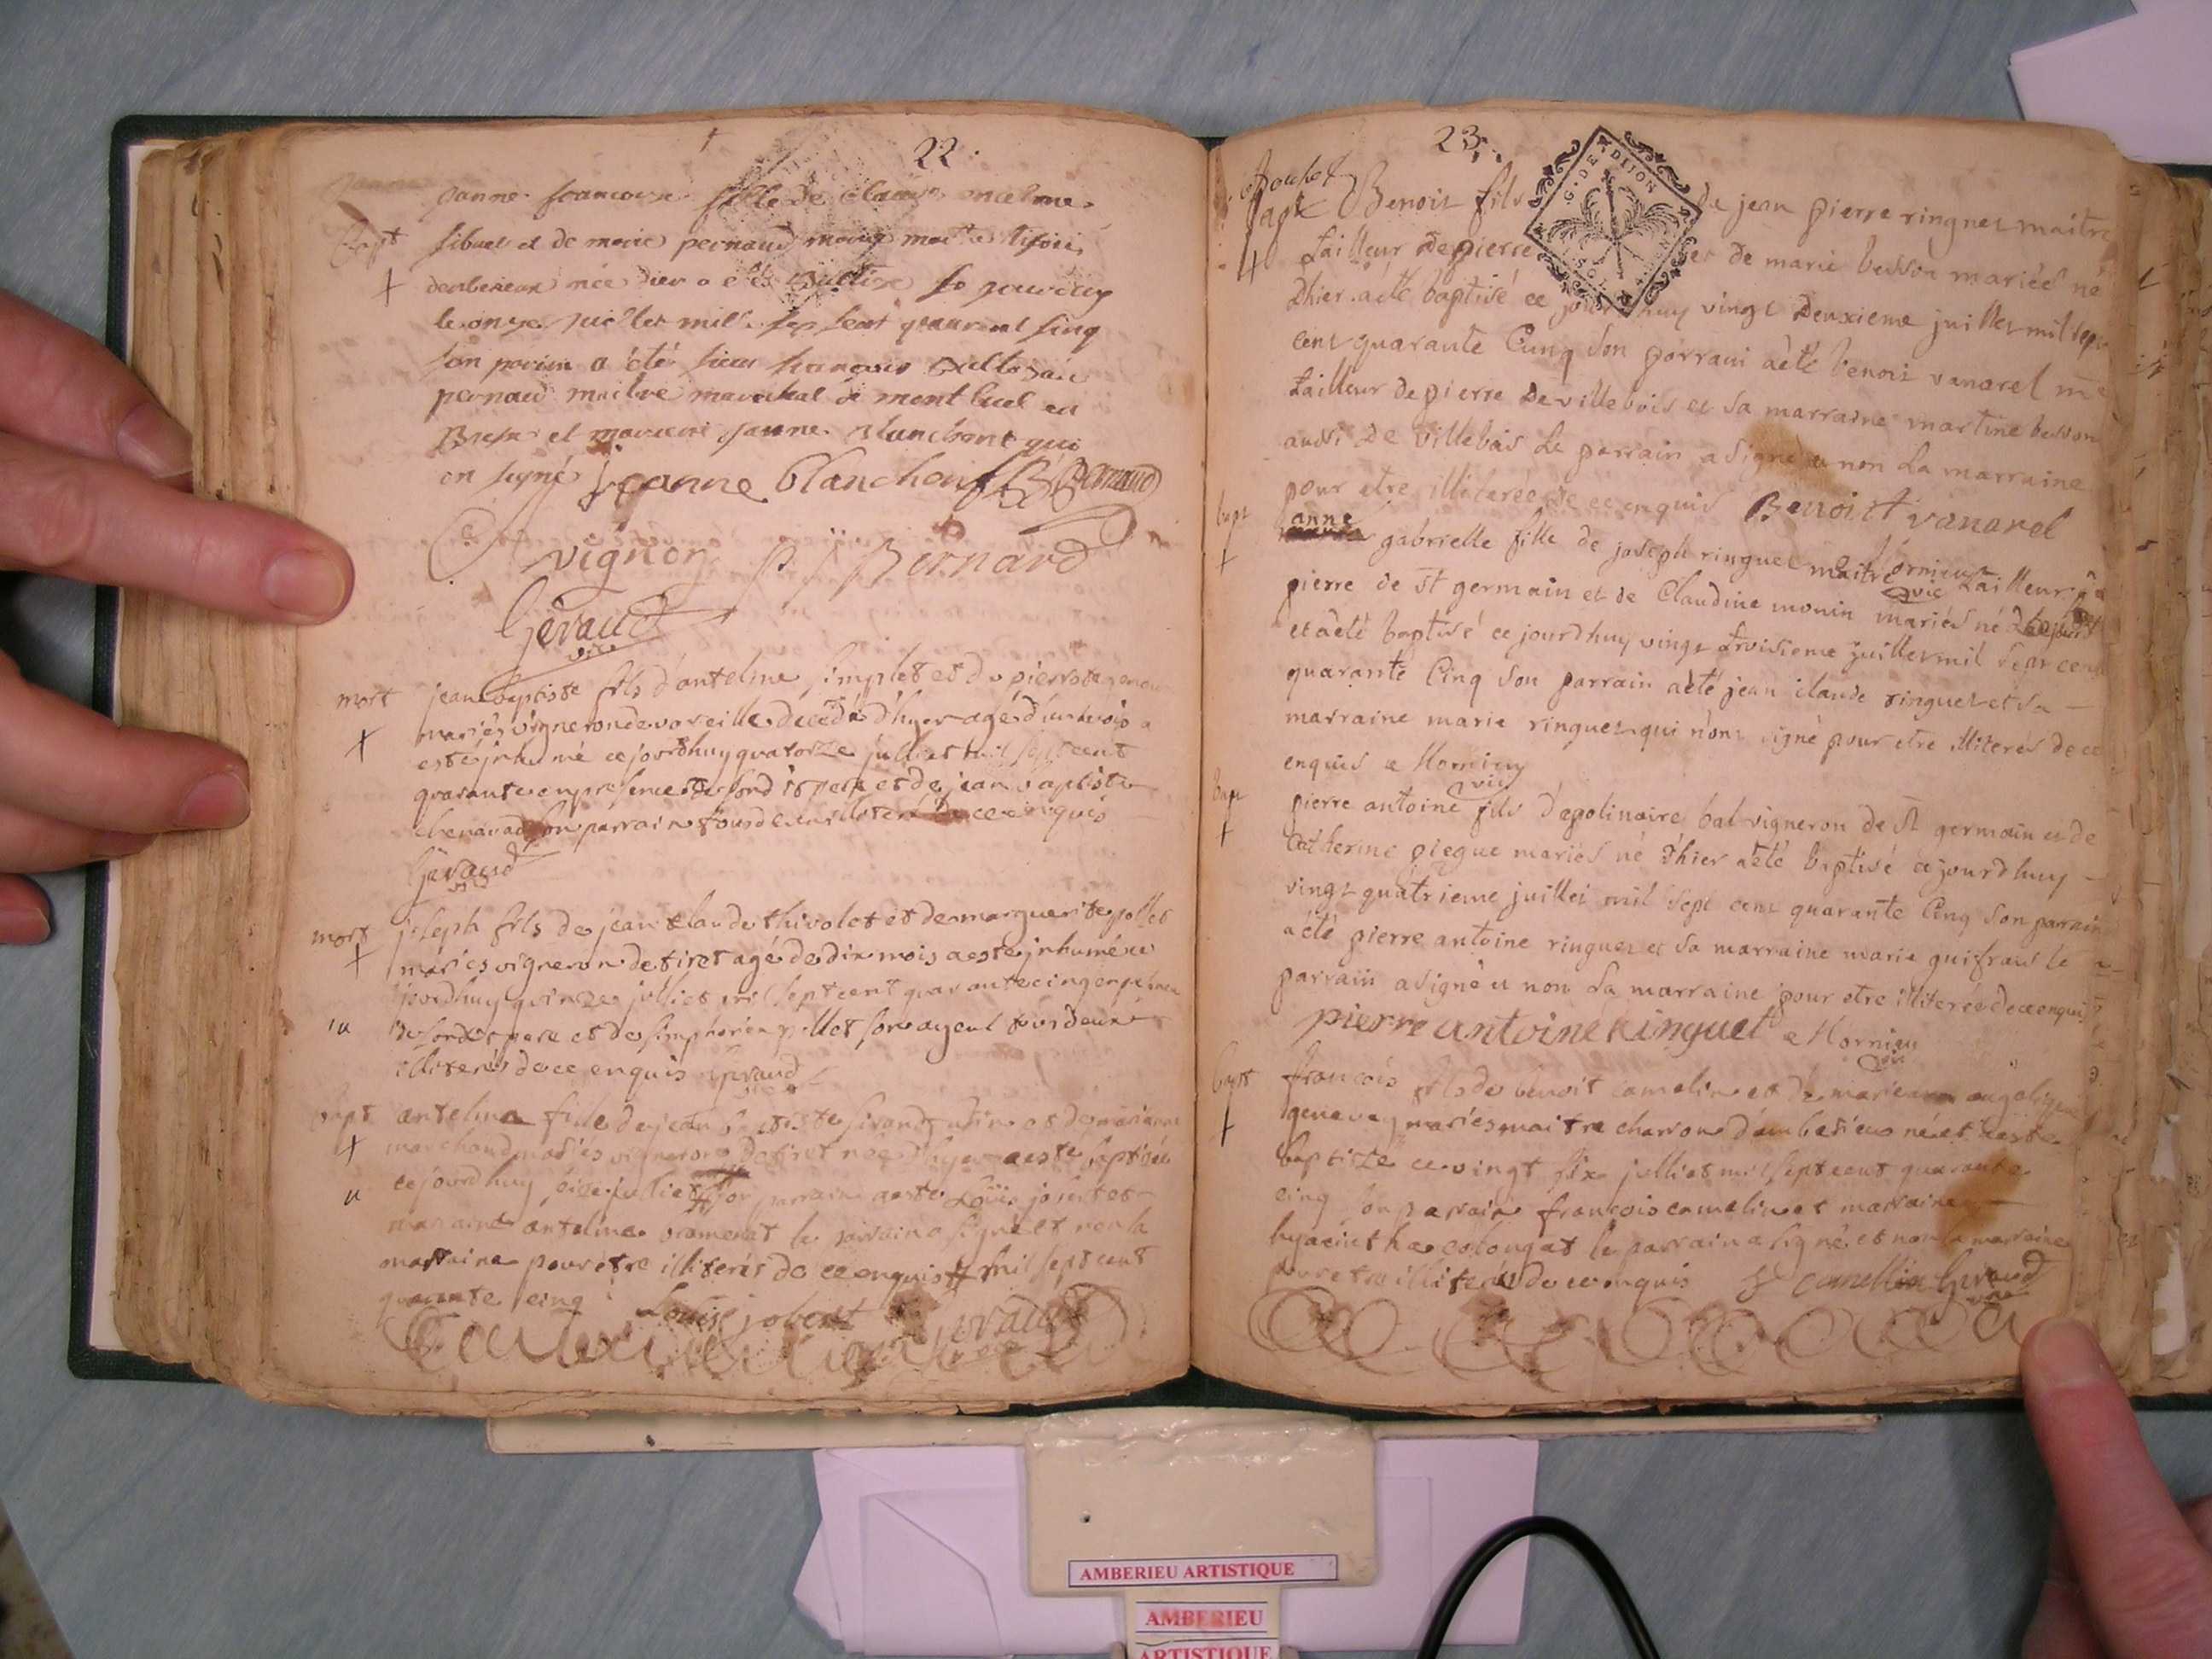 22
janne francoise fille de claude
sibuet et de marie pernaud mariez
bapt
née a été
le onze juillet mille sept cent quarant sinq
son parin a été sieur francois
pernaud maitre marechal de mont luel en
et janne blanchont qui
on signé jeanne blanchon
vignon Bernard
Geraud
vire
mort
jean baptiste fils d'antelme simplet et de pierrete
mariés vigneron de vareille decedé d'hyer agé d'un mois a
esté jnhumé ce jourdhuy quatorze julliet mil sept cent
quarante en presence de sond it pere et de jean baptiste
chenavad son parrain tous deux illiteré de ce enquis
Geraud
mort
joseph fils de jean claude thivolet et de marguerite pollet
mariés vigneron de tiret agé de dix mois a esté jnhumé ce
jourdhuy quinze julliet mil sept cent quarante cinq en presence
de sondit pere et de simphorien pollet son ayeul tous deux
illiterés de ce enquis Geraud
bapt
antelma fille de jean baptiste et de marianne
marchand mariés vigneron de tiret née d'hyer a esté baptisée
ce jourdhuy seize julliet son parrain a esté Louis jobert et
maraine antelma le parrain a signé et non la
marraine pour etre illiterés de ce enquis mil sept cent
quarante cinq Louis jobert Geraud
23
G. DE DIJON
bapt
Benoit fils de jean pierre ringuet maitre
tailleur de pierre et de marie besson mariés né
d'hier a été baptisé ce jourdhuy vingt deuxieme juillet mil sept
cent quarante Cinq son parrain a été benoit vanarel me
tailleur de pierre de villebois et sa marraine martine besson
aussi de villebois Le parrain a signé u non La marraine
pour etre illiterée de ce enquis Benoist vanarel
bapt
anne
gabrielle fille de joseph ringuet maitre tailleur de
pierre de St germain et de Claudine monin mariés né
et a été baptisé ce jourdhuy vingt troisieme juillet mil sept cent
quarante Cinq son parrain a été jean claude ringuet et sa
marraine marie ringuet qui n'ont signé pour etre illiterés de ce
enquis Hornieu
vic
bapt
pierre antoine fils d'apolinaire bal vigneron de St germain et de
Catherine mariés né d'hier a été baptisé ce jourdhuy
vingt quatrieme juillet mil sept cent quarante Cinq son parrain
a été pierre antoine ringuet et sa marraine marie guifrau le
parrain a signé u non La marraine pour etre illiterée de ce enquis
pierre antoine Ringuet Hornieu
vic
bapt
francois fils de benoit camelin et de
genevey mariés maitre charron d'amberieu né et a esté
baptisé ce vingt six julliet mil sept cent quarante
cinq son parrain francois camelin et marraine
hyacintha colongat le parrain a signé et non la marraine
pour etre illiterée de ce enquis camellin Geraud
AMBERIEU ARTISTIQUE
AMBERIEU
ARTISTIQUE